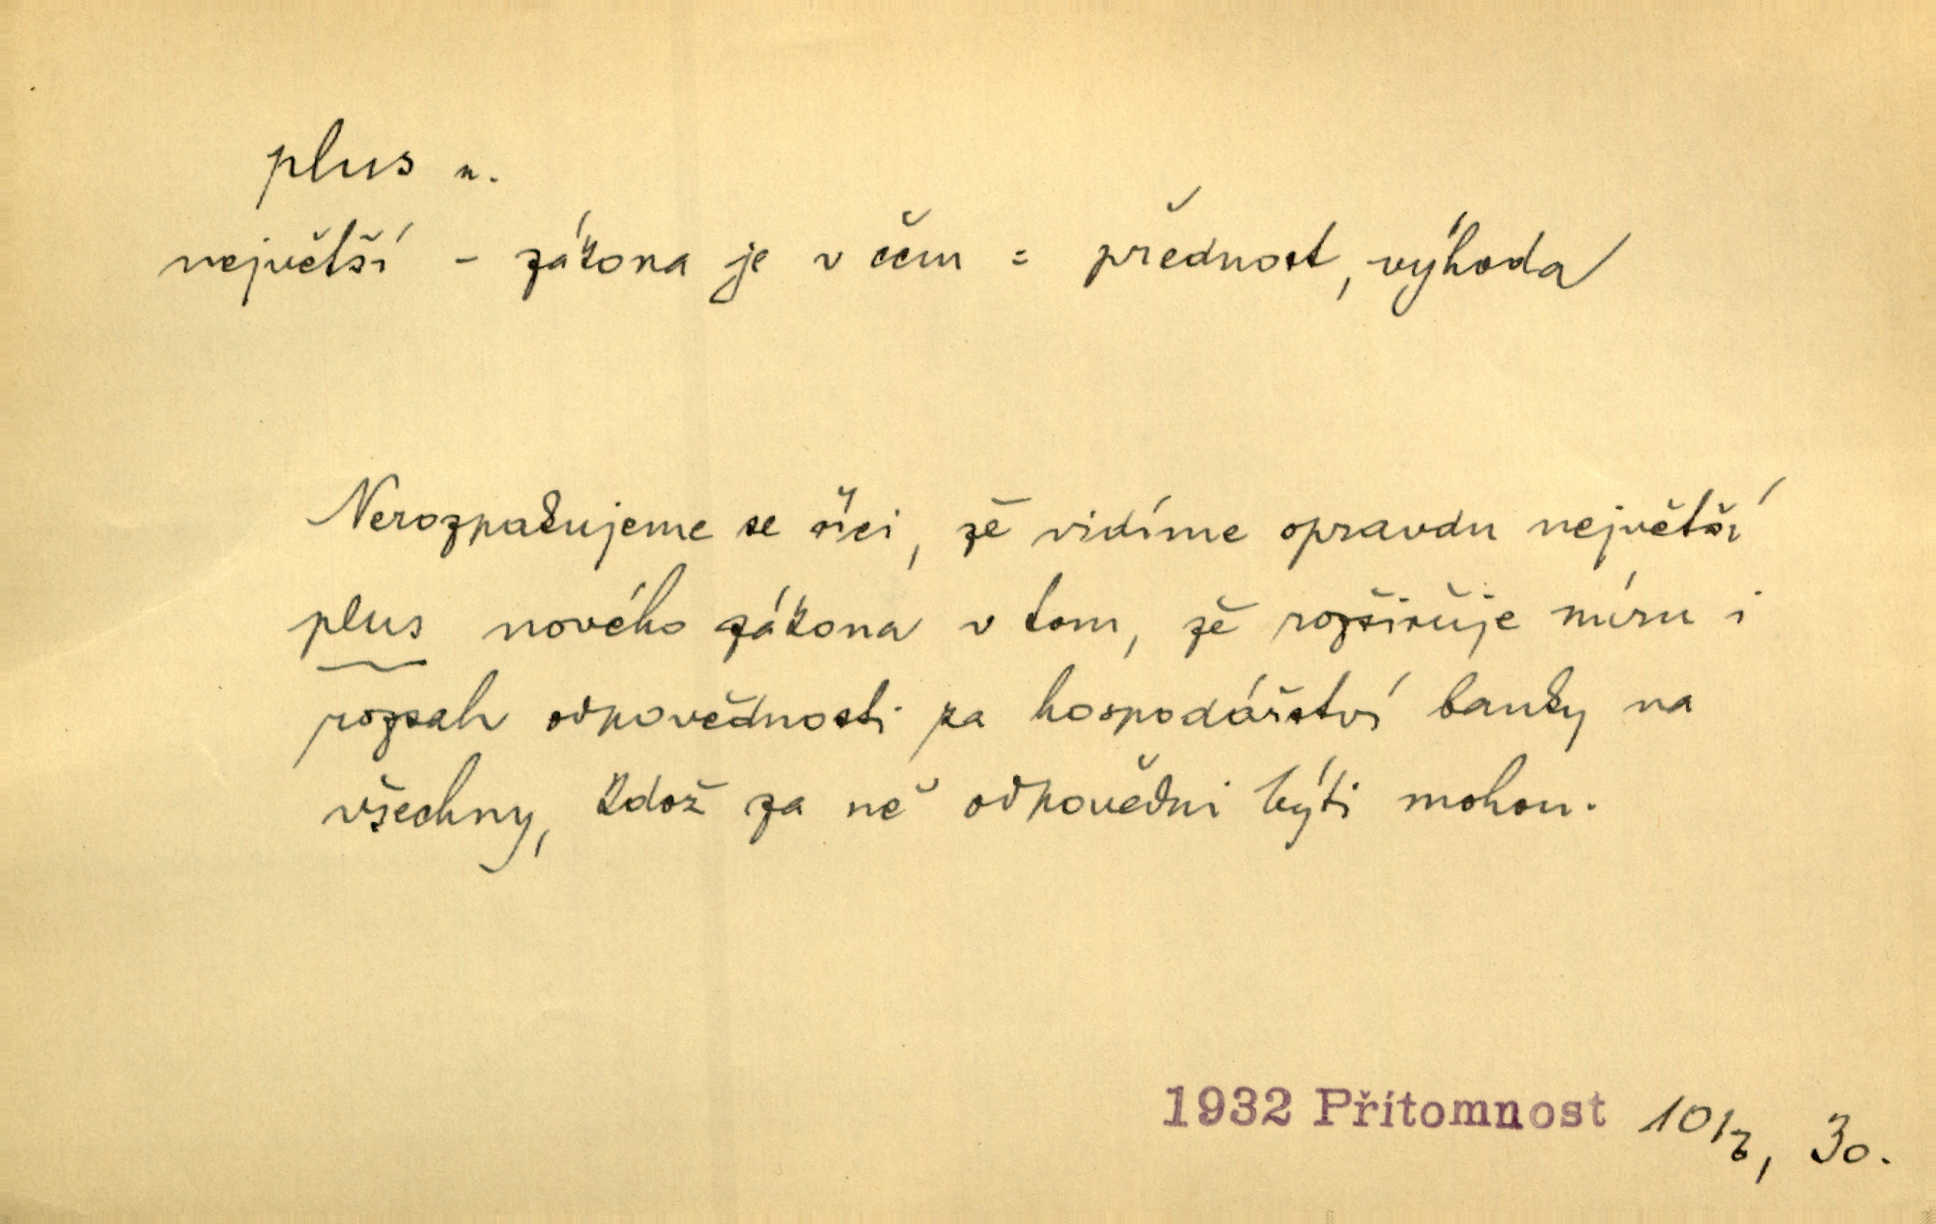 plus n.
největší - zákona je v čem = přednost, výhoda
Nerozpakujeme se říci, že vidíme opravdu největší
plus nového zákona v tom, že rozšiřuje míru i
rozsah odpovědnosti za hospodářství banky na
všechny, kdož za ně odpovědni býti mohou.
1932 Přítomnost 30.